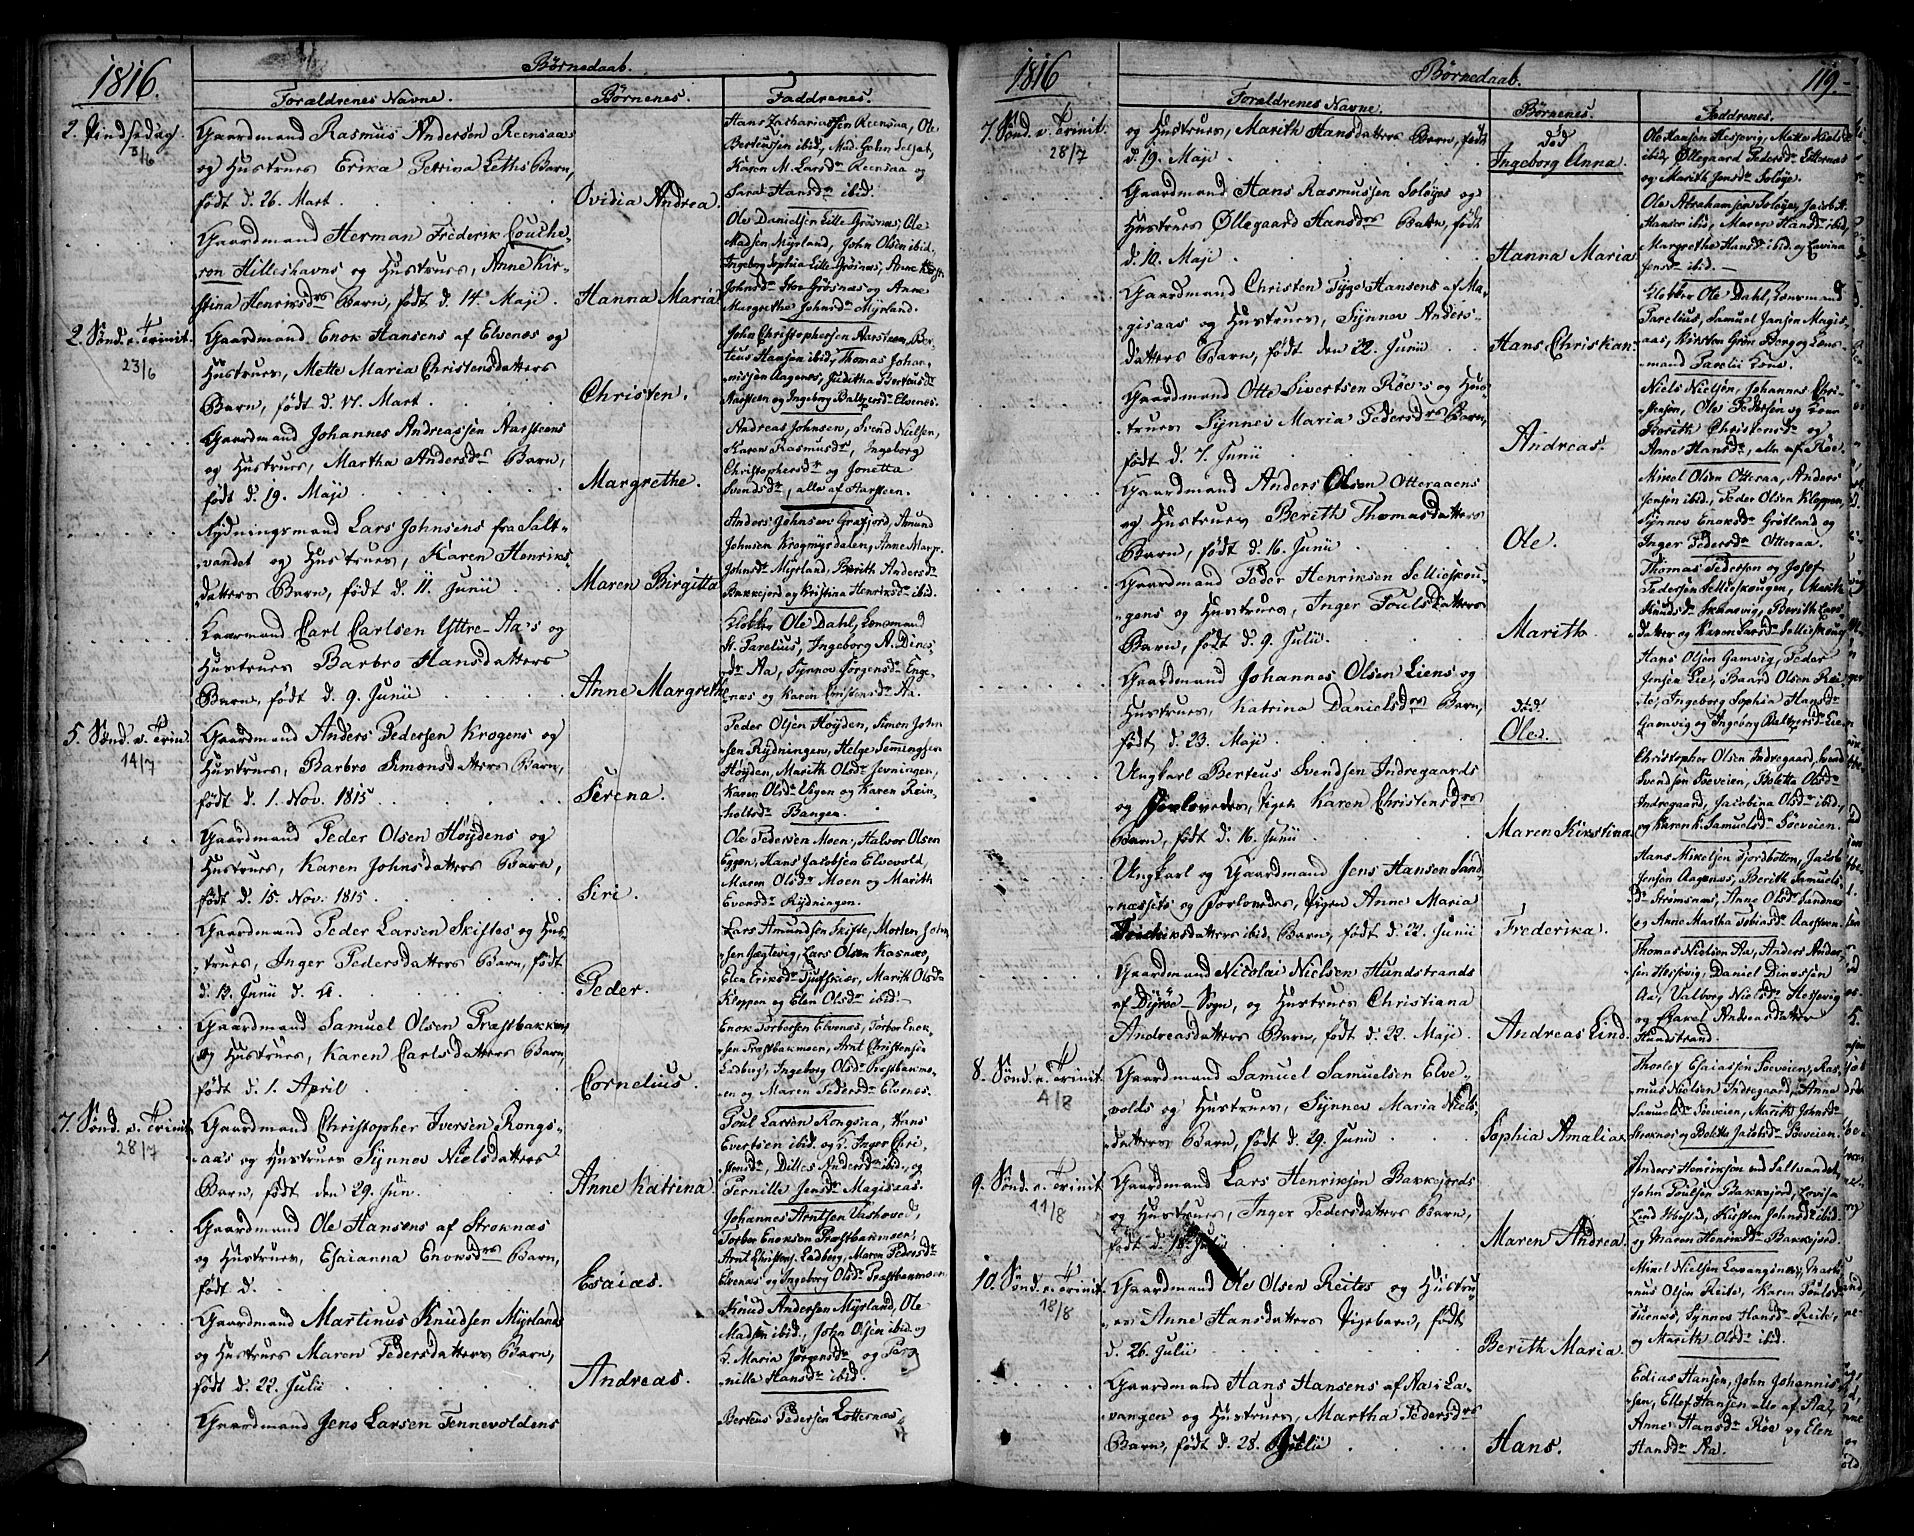 1816.
Børnedaab.
Forældrenes Navne.
Børnenes.
Faddrenes.
2. Pindsedag.
3/6
Gaardmand Rasmus Andersøn Reensaas
og Hustrues Erika Petrina Leths Barn,
født d. 26. Mart.
Ovidia Andrea.
Hans Zachariassen Reensaa, Ole
Bertensen ibid, Mad. Gohn Leljet,
Karen M. Larsdr. Reensaa og
Sara Hansdr. ibid.
Gaardmand Herman Frederik Couche-
ron Hilleshavns og Hustrues, Anne Kir-
stina Henriksdrs Barn, født d. 14 Maji.
Hanna Maria
Ole Danielsen Lille Grøsnæs, Ole
Madsen Myrland, John Olsen ibid.
Ingeborg Sophia Lille Grøinæs, Anne Kirst.
Johnsdr. Stor Grøsnæs og Anne
Margrethe Johnsdr. Myrland.
2. Sønd. e. Trinit.
23/6
Gaardmand Enok Hansens af Elvenes og
Hustrues, Mette Maria Christensdatters
Barn, født d. 17. Mart.
Christen.
John Christophersen Aarsteen, Ber-
teus Hansen ibid, Thomas Johan-
nissen Aagenæs, Juditha Berteusdr.
Aarsteen og Ingeborg Baltzersdr. Elvenes.
Gaardmand Johannes Andreassen Aarsteens
og Hustrues, Martha Andersdrs Barn,
født d. 19. Maji
Margrethe.
Andreas Johnsen, Svend Nielsen,
Karen Rasmusdr., Ingeborg
Christophersdr. og Jonetta
Svendsdr., alle af Aarsteen.
Rydningsmand Lars Johnsens fra Salt-
vandet og Hustrues, Karen Henriks-
datters Barn, født d. 11. Junii
Maren Birgitta
Anders Johnsen Grafjord, Amund
Johnsen Krogmyrdalen, Anne Marg.
Johnsdr. Myrland, Berith Andersdr.
Bakkejord og Kristina Henriksdr. ibid.
Gaarmand Carl Carlsen Yttre-Aa's og
Hustrues Barbro Hansdatters
Barn, født d. 9. Junii
Anne Margrethe
Klokker Ole Dahl, Lensmand
H. Parelius, Ingeborg A. Dines
dr. Aa, Synnev Jørgensdr. Enge-
næs og Karen Christensdr. Aa.
5. Sønd. e. Trin.
14/7
Gaardmand Anders Pedersen Krogens og
Hustrues, Barbro Simonsdatters Barn,
født d. 1. Nov. 1815
Serena.
Peder Olsen Høyden, Simon John
sen Rydningen, Helge Semingsen
Høyden, Marith Olsdr. Jevningen,
Karen Olsdr. Vigen og Karen Rein-
holtsdr. Bangen.
Gaardmand Peder Olsen Høydens og
Hustrues, Karen Johnsdatters Barn,
født d. 15. Nov. 1815
Siri.
Ole Pedersen Moen, Halvor Olsen
Eggen, Hans Jacobsen Elvevold,
Maren Olsdr. Moen og Marith
Evensdr. Rydningen.
Gaardmand Peder Larsen Skiftes og Hus-
trues, Inger Pedersdatters Barn, født
d. 13. Junii d. A.
Peder.
Lars Amundsen Skifte, Morten John
sen Jægtevig, Lars Olsen Kasnæs,
Elen Eriksdr. Tjuffskiær, Marith Olsdr.
Kloppen og Elen Olsdr. ibid.
Gaardmand Samuel Olsen Præstbakkens
og Hustrues, Karen Carlsdatters Barn,
født d. 1. April
Cornelius.
Enok Torbersen Elvenæs, Torber Enok-
sen Præstbakmoen, Arnt Christensen
Ladberg, Ingeborg Olsdr. Præstbakmo-
en og Maren Pedersdr. Elvenes.
7. Sønd. e. Trinit.
28/7
Gaardmand Christopher Iversen Rongs-
aas og Hustrues Synnev Nielsdatters
Barn, født den 29. Jun.
Anne Katrina.
Poul Larsen Rongsaa, Hans
Evertsen ibid og K. Inger Chri-
stensdr., Dilles Andersdr. ibid., og
Pernille Jensdr. Magisaas.
Gaardmand Ole Hansens af Stroknæs
og Hustrues, Esaianna Enoksdrs Barn,
født d.
Esaias.
Johannes Arntsen Vashoved,
Torber Enoksen Præstbakmoen,
Arnt Christensen Ladberg, Maren Pedersdr.
Elvenæs og Ingeborg Olsdr. Præstbakmoen
Gaardmand Martinus Knudsen Myrlands
og Hustrues Maren Pedersdatters Barn,
født d. 22. Julii
Andreas.
Knud Andersen Myrland, Ole
Madsen ibid., John Olsen ibid. og
K. Maria Jørgensdr. og Per-
nille Hansdr. ibid.
Gaardmand Jens Larsen Tennevoldens
Berteus Pedersen Lotternæs
1816
Børnedaab.
119.
Forældrenes Navne.
Børnenes.
Faddrenes.
7. Sønd. e. Trinit.
28/7
og Hustrues, Marith Hansdatters Barn, født
d. 19. Maji
død
Ingeborg Anna.
Ole Hansen Hessevig, Mette Nielsdr.
ibid, Øllegaard Pedersdr. Lotternæs
og Marith Jensdr. Soløye.
Gaardmand Hans Rasmussen Soløyes og
Hustrues Øllegaard Hansdrs Barn, født
d. 10. Maji
Hanna Maria
Ole Abrahamsen Soløye, Jacob A.
Hansen ibid, Maren Hansdr. ibid,
Margrethe Hansdr. ibid. og Lovina
Jensdr. ibid.
Gaardmand Christen Tyge Hansens af Ma-
gisaas og Hustrues, Synnev Anders-
datters Barn, født den 22. Junii
Hans Christian.
Klokker Ole Dahl, Lensmand
Parelius, Samuel Jansen Magis-
aas, Kirsten Grøn Berg og Lens-
mand Parelii Kone.
Gaardmand Otte Sivertsen Røe's og Hus-
trues Synnev Maria Pedersdrs Barn,
født d. 7. Junii
Andreas.
Niels Nielsen, Johannes Chri-
stensen, Ole Pedersen og Kone
Berith Christensdr. og
Anne Hansdr., alle af Røe.
Gaardmand Anders Olsen Otteraaens
og Hustrues Berith Thomasdatters
Barn, født d. 16. Junii
Ole.
Mikel Olsen Otteraa, Anders
Jensen ibid., Peder Olsen Kloppen,
Synnev Enoksdr. Grøtland og
Inger Pedersdr. Otteraa.
Gaardmand Peder Henriksen Selljeskou-
gens og Hustrues, Inger Poulsdatters
Barn, født d. 9. Julii.
Marith.
Thomas Pedersen og Josef
Pedersen Selljeskougen, Marith
Knudsdr. Skaarvig, Berith Lars
datter og Karen Larsdr. Selljeskoug
Gaardmand Johannes Olsen Liens og
Hustrues, Katrina Danielsdrs Barn,
født d. 23. Maji
død
Ole.
Hans Olsen Gamvig, Peder
Jensen Lie, Baard Olsen Rei-
te, Ingeborg Sophia Hansdr.
Gamvig og Ingeborg Baltzersdr. Lien
Ungkarl Berteus Svendsen Indregaards
og Forlovedes, Pigen Karen Christensdrs
Barn, født d. 16. Junii
Maren Kirstina.
Christopher Olsen Indregaard, Svend
Svendsen Søeveien, Boletta Olsdr.
Indregaard, Jacobina Olsdr. ibid.,
og Karen K. Samuelsdr. Søeveien.
Ungkarl og Gaardmand Jens Hansen Sand-
næssets og Forlovedes, Pigen Anne Maria
Fredriksdatters ibid. Barn, født d. 22. Junii
Frederika.
Hans Mikelsen Fjordbotten, Jacob
Jensen Aagenæs, Berith Samuels-
dr. Strømsnæs, Anne Olsdr. Sandnæs
og Anne Martha Tobiasdr. Aarsteen
Gaardmand Nicolai Nielsen Hundstrands
af Dyrøe-Sogn, og Hustrues Christiana
Andreasdatters Barn, født d. 22. Maji
Andreas Lind.
Thomas Nielsen Aa, Anders Ander-
sen Hessevig, Daniel Dinessen
Aa, Valborg Nielsdr. Hessevig
og Rakel Andreasdatter
Hundstrand.
8. Sønd. e. Trinit.
4/8
Gaardmand Samuel Samuelsen Elve-
volds og Hustrues, Synnev Maria Niels-
datters Barn, født d. 29. Junii
Sophia Amalia
Thorlef Esaiassen Søeveien, Ras-
mus Nielsen Indregaard, Anne
Samuelsdr. Søeveien, Marith Johnsdr.
Stroknes og Bolette Jacobsdr. Søeveien.
9. Sønd. e. Trinit.
11/8
Gaardmand Lars Henriksen Bakkejords
og Hustrues, Inger Pedersdatters Barn,
født d. 18. Julii
Maren Andrea.
Anders Henriksen ved Saltvandet,
John Poulsen Bakkejord, Lovisa
Lind Ibestad, Kirsten Johnsdr. ibid.
og Maren Henriksdr. Bakkejord.
10. Sønd. e. Trinit.
18/8
Gaardmand Ole Olsen Reites og Hustru-
es Anne Hansdatters Pigebarn, født
d. 26. Julii
Berith Maria.
Mikel Nielsen Lavangsnæs, Marti-
nus Olsen Reite, Karen Poulsdr.
Furnæs, Synnev Hansdr. Reite,
og Marith Olsdr. ibid.
Gaardmand Hans Hansens af Aa i La-
vangen og Hustrues, Martha Pedersdrs
Barn, født d. 28. Julii
Hans.
Edias Hansen, John Johannis-
sen, Ellef Hansen alle af Aa,
Anne Hansdr. Røe og Elen
Hansdr. Aa.